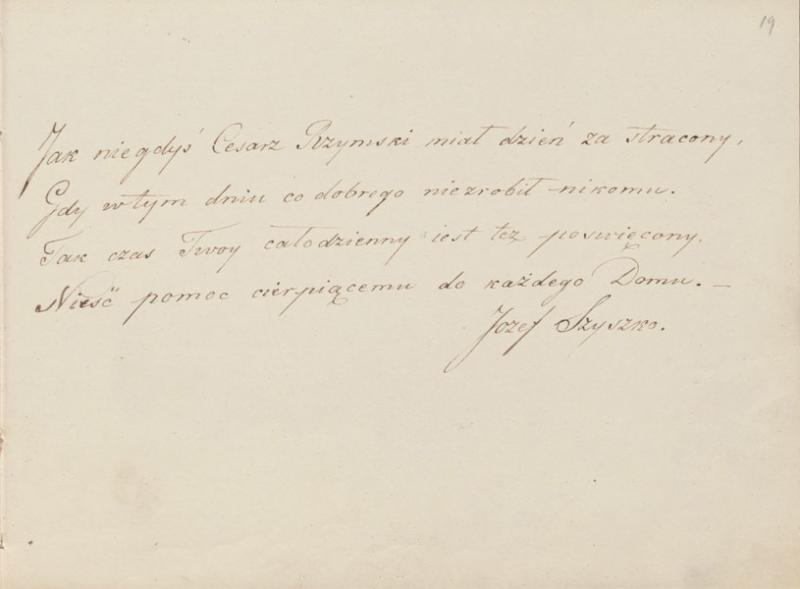 19
Jak niegdyś Cesarz Rzymski miał dzień za stracony,
Gdy w tym dniu co dobrego niezrobił nikomu.
Tak czas Twoy całodzienny iest też poswięcony.
Nieść pomoc cierpiącemu do każdego Domu. —
Jozef Szyszko.